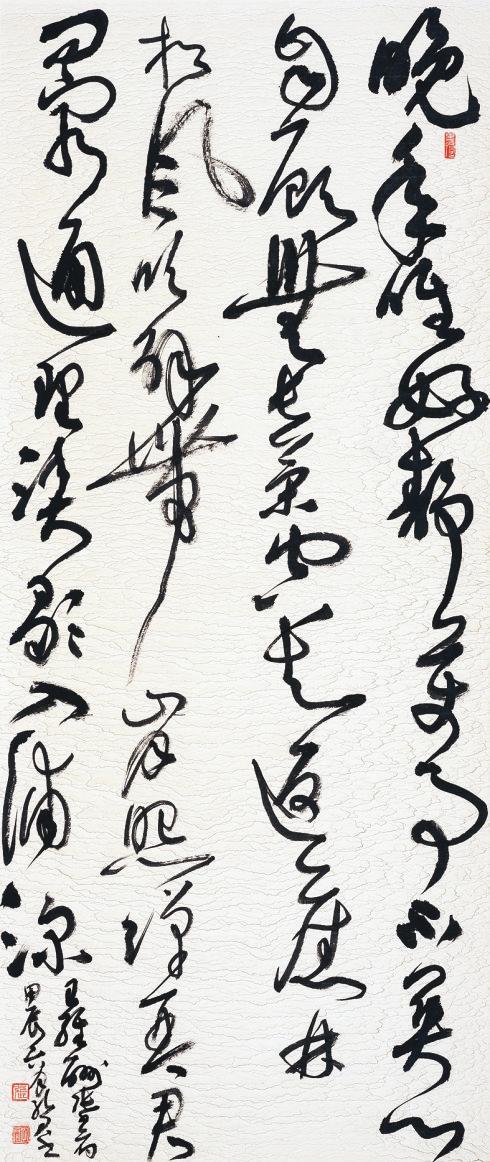 晚年唯好静萬事不關心
自顾無长策空知返舊林
松风吹解帶山月照弹琴君
问窮通理漁歌入浦深
王維酬张少府
甲辰六月